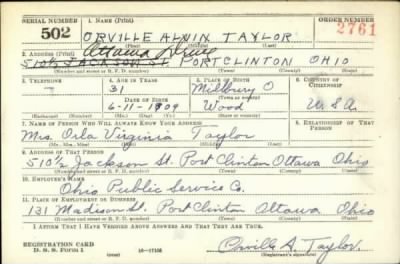 SERIAL NUMBER 1. NAME (Print) ORDER NUMBER
502 ORVILLE ALVIN TAYLOR 2761
2. ADDRESS (Print) Ottawa Drive
510½ JACKSON ST PORT CLINTON OHIO
(Number and street or R. F. D. number) (Town) (County) (State)
3. TELEPHONE 4. AGE IN YEARS 5. PLACE OF BIRTH 6. COUNTRY OF CITIZENSHIP
31 Millbury O
DATE OF BIRTH (Town or county)
6-11-1909 Wood U.S.A.
(Mo.) (Day) (Yr.) (State or country)
7. NAME OF PERSON WHO WILL ALWAYS KNOW YOUR ADDRESS 8. RELATIONSHIP OF THAT PERSON
Mrs. Orla Virginia Taylor
(Mr., Mrs., Miss) (First) (Middle) (Last)
9. ADDRESS OF THAT PERSON
510½ Jackson St. Port Clinton Ottawa Ohio
(Number and street or R. F. D. number) (Town) (County) (State)
10. EMPLOYER'S NAME
Ohio Public Service Co.
11. PLACE OF EMPLOYMENT OR BUSINESS
131 Madison St. Port Clinton Ottawa Ohio
(Number and street or R. F. D. number) (Town) (County) (State)
I AFFIRM THAT I HAVE VERIFIED ABOVE ANSWERS AND THAT THEY ARE TRUE.
REGISTRATION CARD
D. S. S. Form 1 (over) 16-17105 Orville A. Taylor
(Registrant's signature)